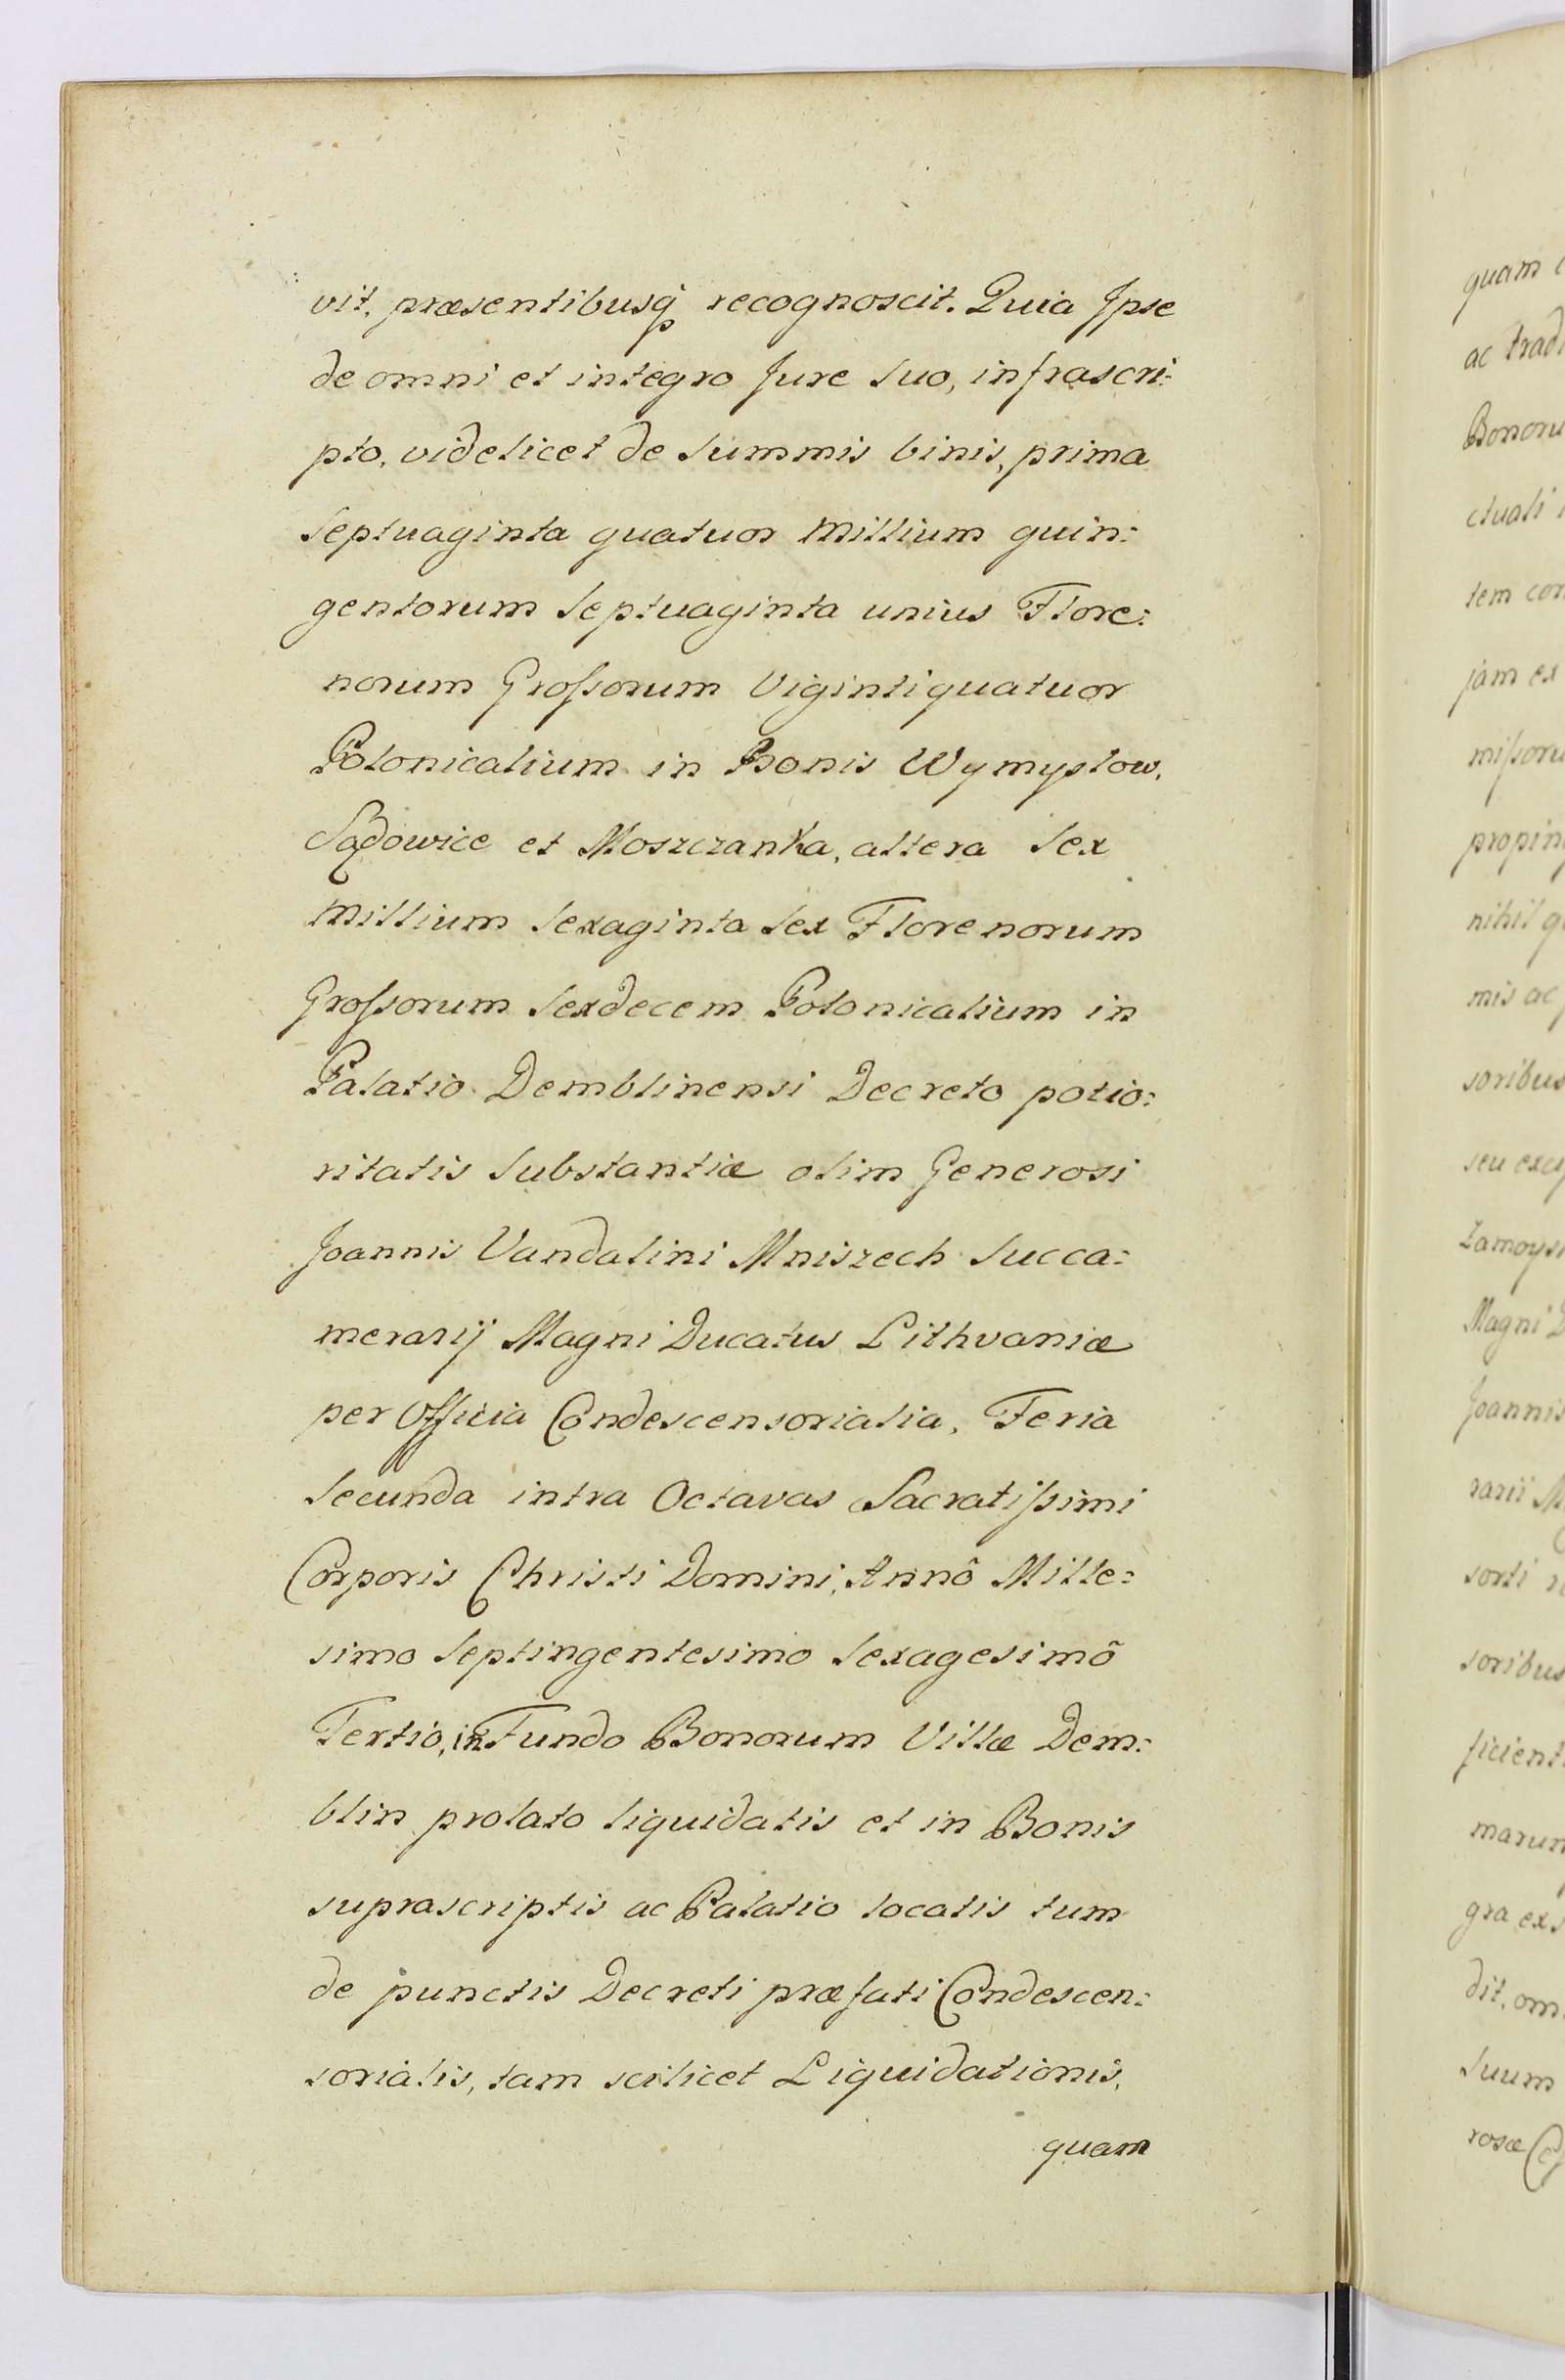 vit, præsentibusq̃ recognoscit. Quia Ipse
de omni et integro Jure suo, infrascri:
pto, videlicet de summis binis, prima
Septuaginta quatuor Millium quin:
gentorum Septuaginta unius Flore:
norum Grossorum Vigintiquatuor
Polonicalium in Bonis Wymysłow,
Sądowice et Moszczanka, altera Sex
Millium Sexaginta Sex Florenorum
Grossorum Sexdecem Polonicalium in
Palatio Demblinensi Decreto potio:
ritatis Substantiæ olim Generosi
Joannis Vandalini Mniszech Succa:
merarij Magni Ducatus Lithvaniæ
per Officia Condescensorialia, Feria
Secunda intra Octavas Sacratissimi
Corporis Christi Domini, Annô Mille:
simo Septingentesimo Sexagesimô
Tertio, in Fundo Bonorum Villæ Dem:
blin prolato liquidatis et in Bonis
suprascriptis ac Palatio locatis tum
de punctis Decreti præfati Condescen:
sorialis, tam scilicet Liquidationis,
quam
quam
ac tradi
Bonoru
ctuali
tem con
jam ex
missoru
propin
nihil
mis ac
soribus
seu exc
Zamoys
Magni D
Joannis
rarii M
sorti
soribus
ficient
marum
gra ex
dit, om
Suum
rosæ